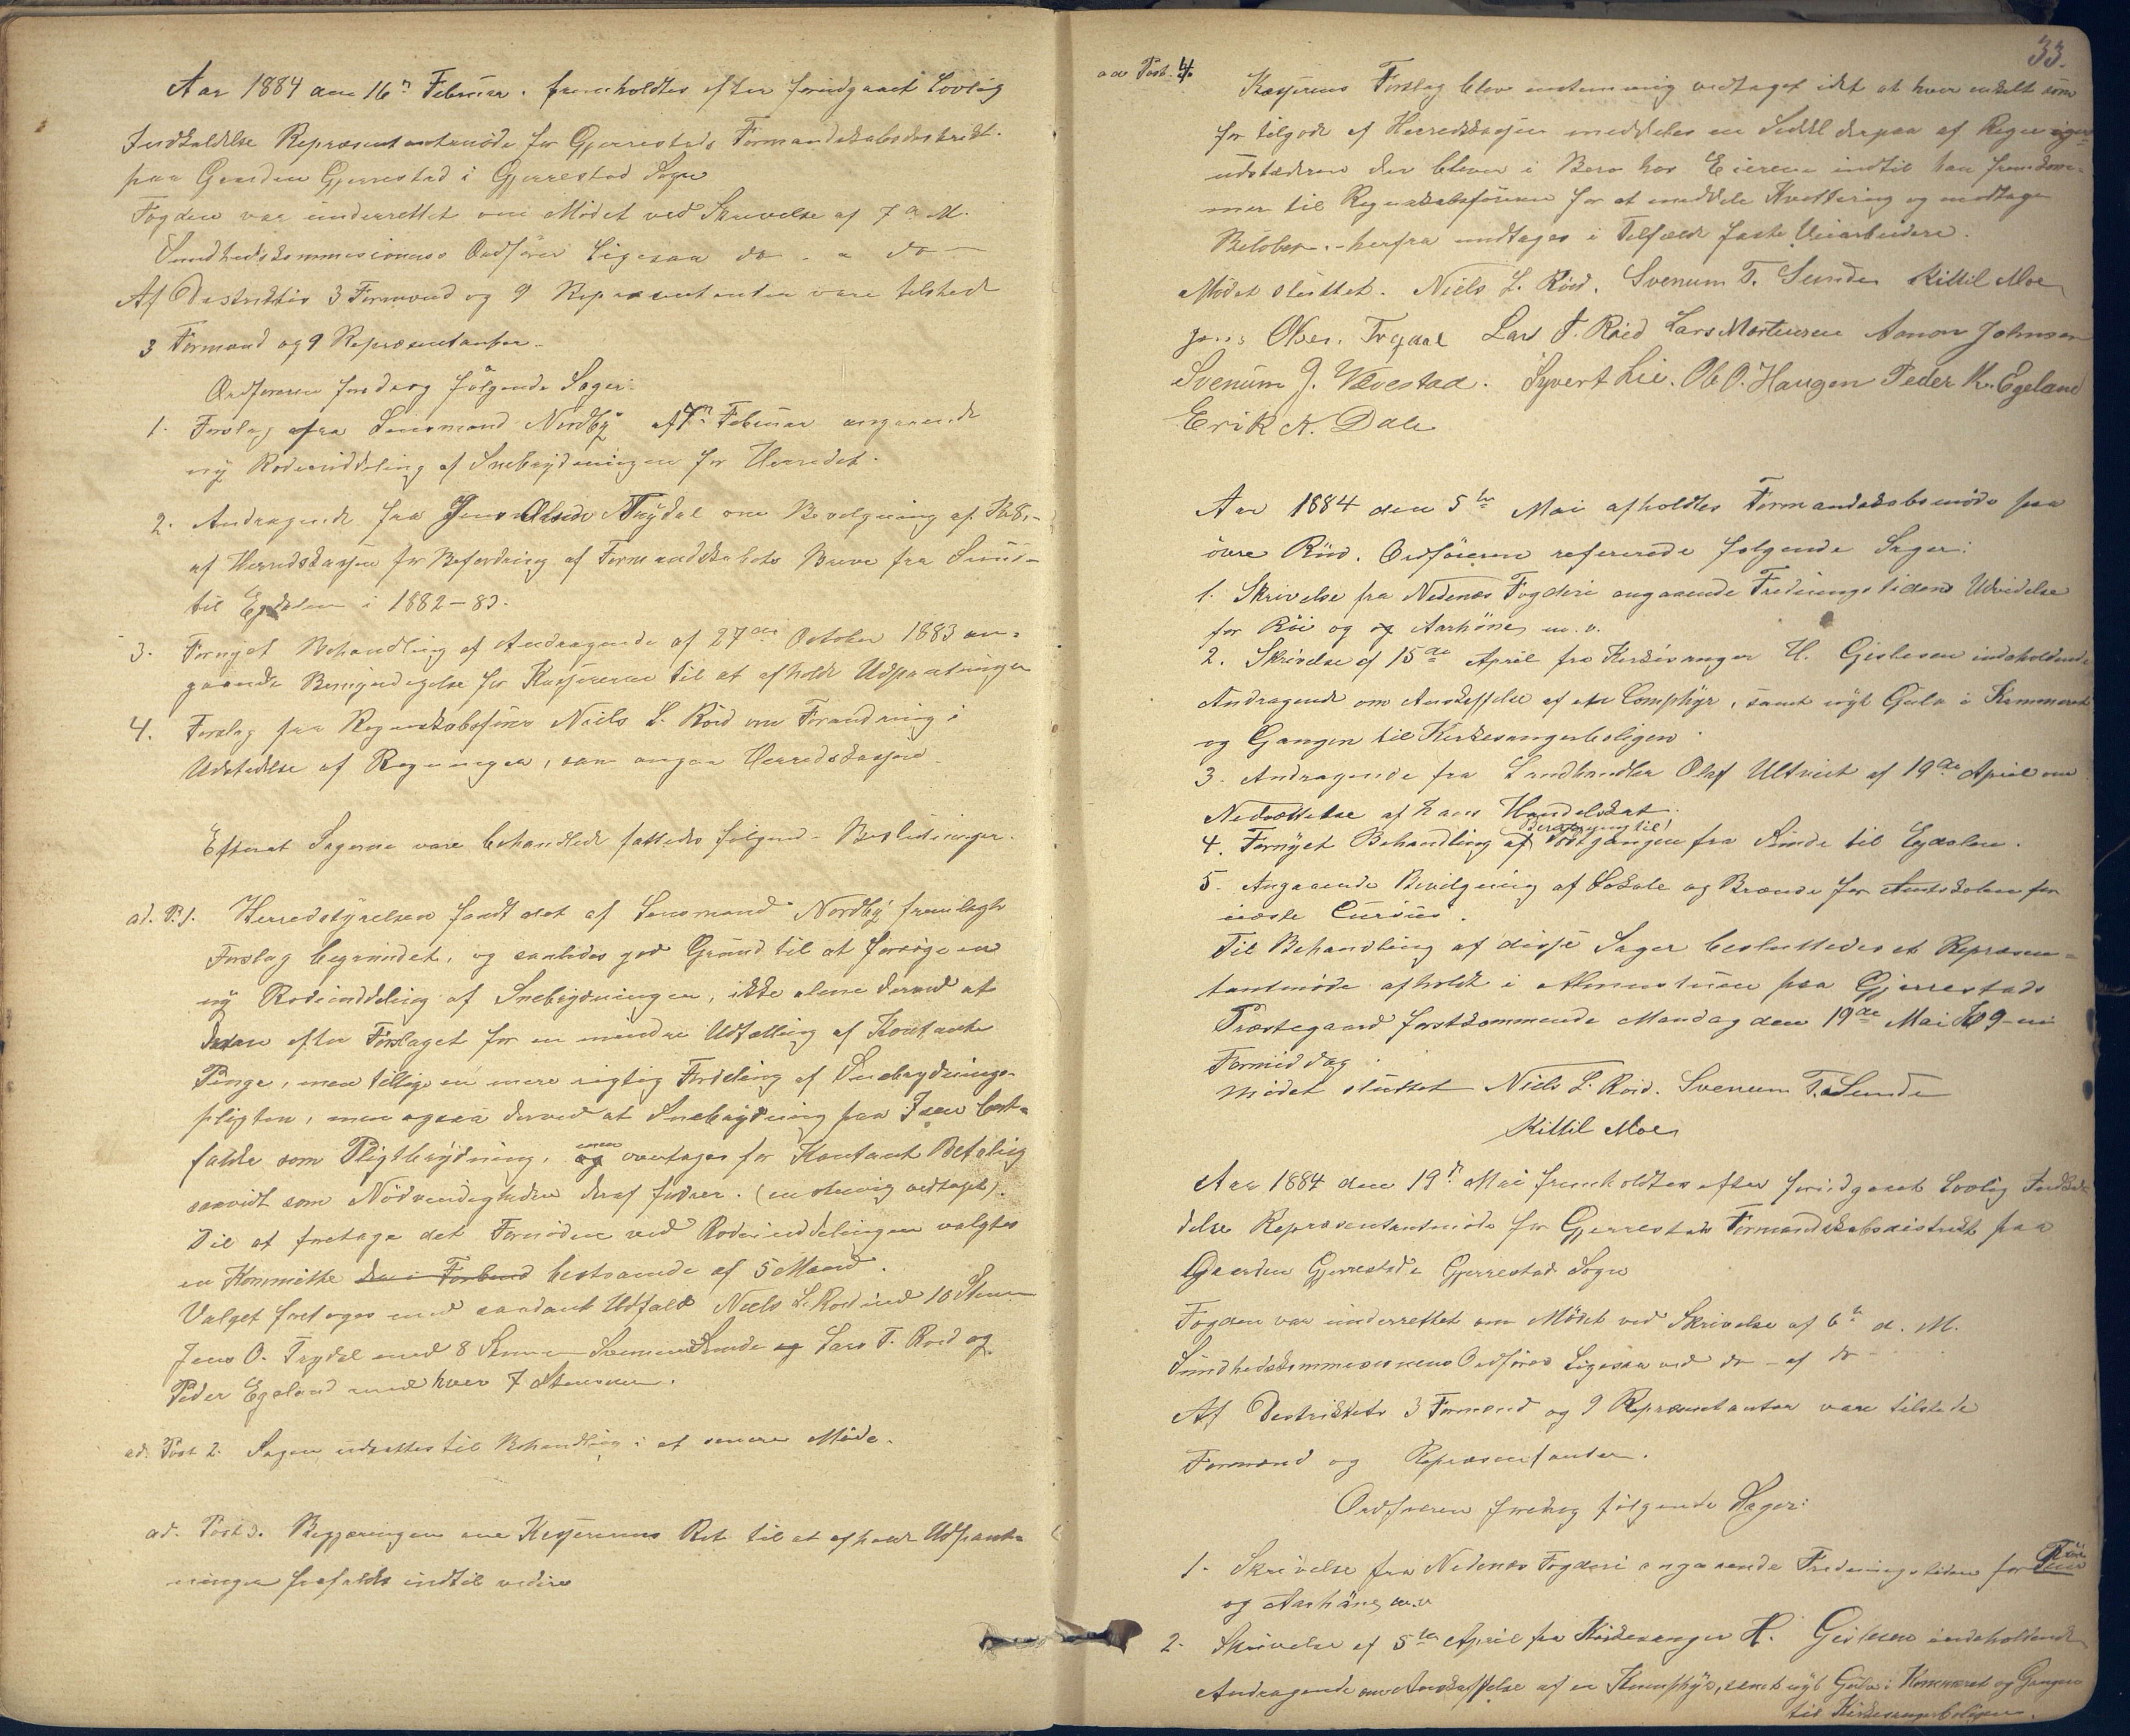 Aar 1884 den 16n Februar fremholdtes efter foridgaaet Lovlig
Indkaldelse Repræsentantmöde for Gjerrestads Formandskabsdistrikt
paa Gaarden Gjerrestad i Gjerrestad Sogn
Fogden var underrettet om Mödet ved Skrivelse af 7 d. M.
Sundhedskommisionens Ordförer Ligesaa do - a do -
Af Distriktets 3 Formænd og 9 Repræsentanter vare tilstede
3 Formænd og 9 Repræsentanter.
Ordföreren foredrog fölgende Sager:
1. Forslag fra Lensmand Nordby af 7n Februar angaaende
ny Rodeinddeling af Snebrydningen for Herredet.
2. Andragende fra Jens Olsen Trydal om Bevilgning af Kr 8,-
af Herredskassen for Befordring af Formandskabets Breve fra Sunde
til Egdalen i 1882-83.
3. Fornyet Behandling af Andragende af 27de October 1883 an-
gaaende Bemyndigelse for Kassereren til at afholde Udpantninger
4. Forslag fra Regnskabsförer Niels L. Röed om Forandring i
Udstedelse af Regninger, som angaa Herredskassen.
Efterat Sagerne vare behandlede fattedes fölgende Beslutninger.
ad. P. 1. Herredstyrelsen fandt det af Lensmand Nordby fremlagte
Forslag begrundet, og saaledes god Grund til at forsöge en
ny Rodeinddeling af Snebrydningen, ikke alene derved at
der efter Forslaget for en mindre Udtælling af Kontante
Penge, men tillige en mere rigtig Fordeling af Snebrydnings-
pligten, men ogsaa derved at Snebrydning paa Isen bort-
falde som Pligtbrydning, og men overtages for Kontant Betaling
saavidt som Nödvendigheden deraf fodrer. (enstemmig vedtaget).
Til at foretage det Fornödne ved Rodeinddelingen valgtes
en Kommitte den i Forbund bestaaende af 5 Mand.
Valget foretoges med saadant Udfald Niels L. Röed med 10 Stemmer
Jens O. Trydal med 8 Stemmer Svenum Sunde og Lars T. Roed og
Peder Egeland med hver 7 Stemmer.
ad. Post 2. Sagen udsættes til Behandling i et senere Möde.
ad. Post 3. Begjæringen om Kassererens Ret til at afholde Udpant-
ninger frafaldes indtil videre
33.
ad Post. 4.
Kasserens Forslag blev enstemmig vedtaget idet at hver enkelt som
for tilgode af Herredskassen meddeles en Seddel derpaa af Regninger
udstæderen der bliver i Bero hos Eieren indtil han fremkom-
mer til Regnskabsföreren for at meddele Kvittering og modtage
Belöbet. - herfra undtages i Tilfælde faste Veiarbeidere.
Mödet sluttet. Niels L. Röed. Svenum T. Sunde Kittil Moe
Jens Olsen Trydal Lars T. Röed Lars Mortensen Aanon Johnsen
Svenüm J. Vævestad. Syvert Lie. Ole O. Haugen Peder K. Egeland
Erik K. Dale
Aar 1884 den 5te Mai afholdtes Formandskabsmöde paa
övre Röed. Ordföreren refererede fölgende Sager:
1. Skrivelse fra Nedenæs Fogderi angaaende Fredningstidens Udvidelse
for Röi og og Aarhöns m. v.
2. Skrivelse af 15de April fra Kirkesanger H. Gislesen indeholdende
Andragende om Anskaffelse af en Comphyr, samt nyt Gulv i Kammeret
og Gangen til Kirkesangerboligen.
3. Andragende fra Landhandler Olaf Ultveit af 19de April om
Nedsættelse af hans Handelskat.
4. Fornyet Behandling af Postgangen fra Sunde til Egdalen.
5. Angaaende Bevilgning af Lokale og Brænde for Amtskolen for
næste Cursus.
Til Behandling af disse Sager besluttedes et Repræsen-
tantmöde afholdt i Almuestuen paa Gjerrestads
Præstegaard förstkommende Mandag den 19de Mai Kl 9 -
Formiddag.
Mödet sluttet Niels L. Roed. Svenum T. Sunde
Kittil Moe
Aar 1884 den 19n Mai fremholdtes efter foridgaaet Lovlig Indkal-
delse Repræsentantmöde for Gjerrestads Formandskabsdistrikt paa
Gaarden Gjerrestad i Gjerrestad Sogn
Fogden var underrettet om Mödet ved Skrivelse af 6te d. M.
Sundhedskommisionens Ordförer Ligesaa ved do - af do
Af Distriktets 3 Formænd og 9 Repræsentanter vare tilstede
Formænd og Repræsentanter.
Ordföreren foredrog fölgende Sager:
1. Skrivelse fra Nedenæs Fogderi angaaende Fredningstiden for Röi
og Aarhöns m.v
2. Skrivelse af 5te April fra Kirkesanger H. Gislesen indeholdende
Andragende om Anskaffelse af en Komphyr, samt nyt Gulv i Kammeret og Gangen
til Kirkesangerboligen.